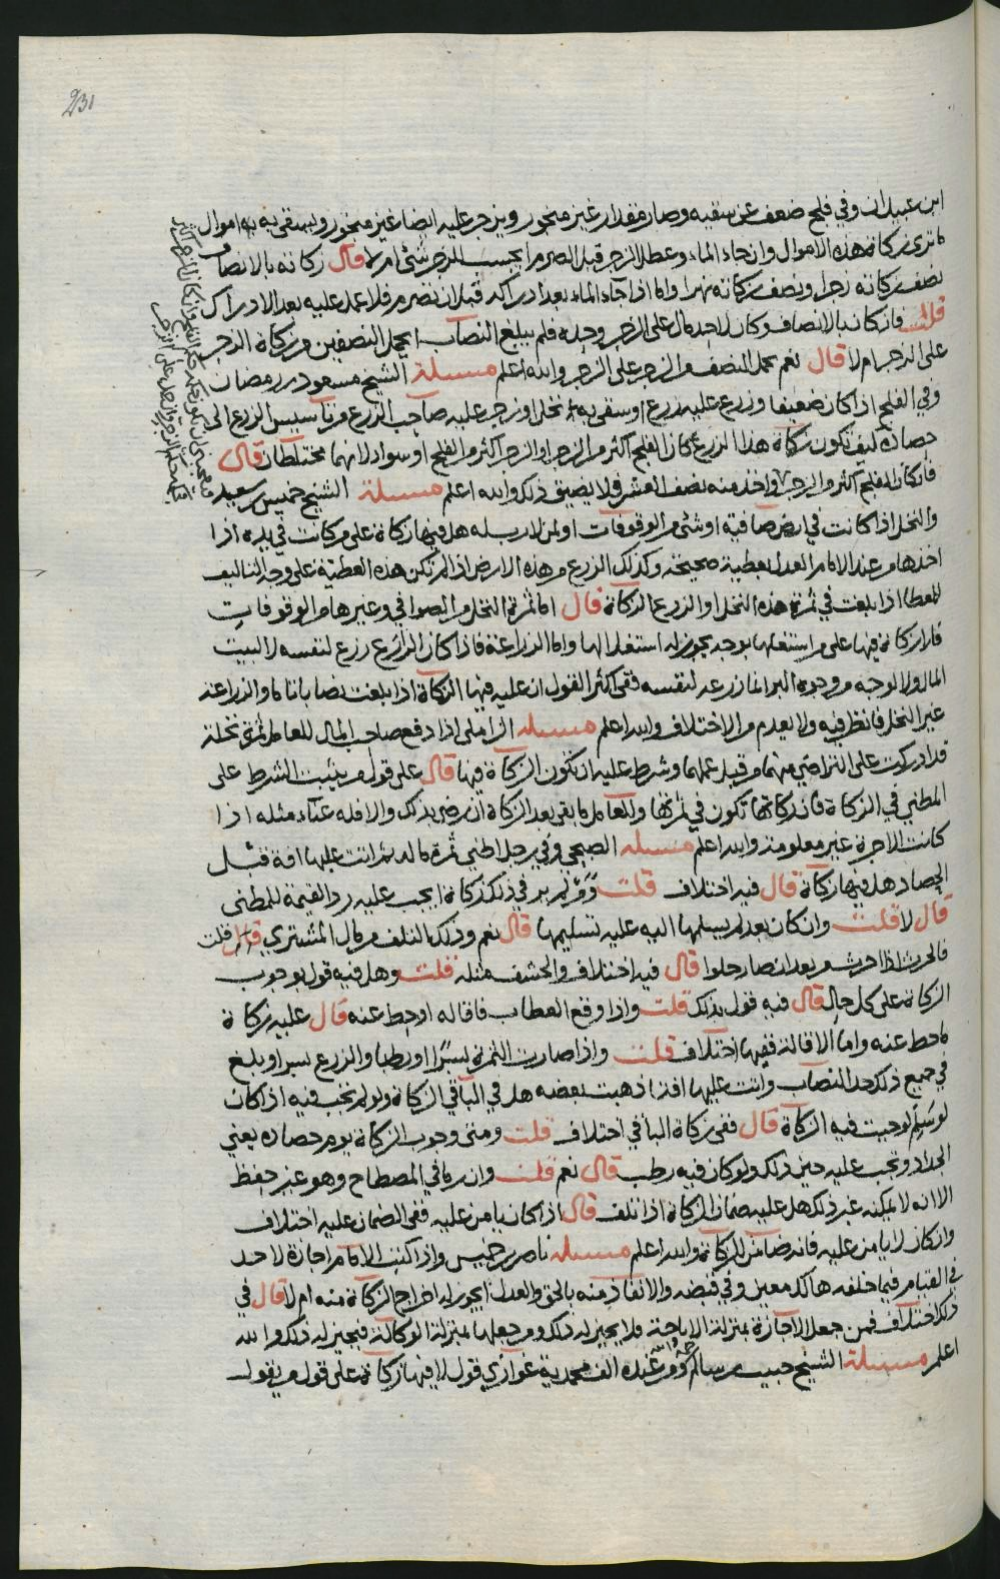 231
ابن عبيدان وفي فلج ضعف عن سقيه وصار مقدار غير منحور ويزجر عليه ايضا غير منحور ويسقى به به اموال
ما ترى زكاة هذه الاموال وان جاء الماء وعطل الزجر قبل الصرم ايحسب للزجر شئ ام لا قال زكاته بالانصاف
نصف زكاته زجرا ونصف زكاته نهرا واما اذا جاء الماء بعد ادراكه قبل ان تصرم فلا عمل عليه بعد الادراك
قلت فان كان بالانصاف وكان لاحد مال على الزجر وحده فلم يبلغ النصاب ايحمل النصفين من زكاة الزجر
على الزجر ام لا قال نعم يحمل النصف من الزجر على الزجر والله اعلم مسئلة الشيخ مسعود بن رمضان
وفي الفلج اذا كان ضعيفا وزرع عليه زرع او سقي به نخل او زجر عليه صاحب الزرع من تاسيس الزرع الى
حصاده كيف تكون زكاة هذا الزرع كان الفلج اكثر من الزجر او الزجر اكثر من الفلج او سواء لانهما مختلطان قال
فان كان الفلج اكثر من الزجر واخذ منه نصف العشر فلا يضيق ذلك والله اعلم مسئلة الشيخ خميس بن سعيد
والنخل اذا كانت في ارض صافية او شئ من الوقوفات او لمن لا رب له هل فيها زكاة على من كانت في يده اذا
اخذها من عند الامام العدل بعطية صحيحة وكذلك الزرع من هذه الارض اذا لم تكن هذه العطية على وجه التاليف
للمعطا اذا بلغت في ثمرة هذه النخل او الزرع الزكاة قال اما ثمرة النخل من الصوافي وغيرها من الوقوفات
فلا زكاة فيها على من استغلها بوجه يجوز له استغلالها واما الزراعة فاذا كان الزارع زرع لنفسه لا لبيت
المال ولا لوجه من وجوه البر انما زرعه لنفسه ففي اكثر القول ان عليه فيها الزكاة اذا بلغت نصابا تاما والزراعة
غير النخل فانظر فيه ولا يعدم من الاختلاف والله اعلم مسئلة الزاملي اذا دفع صاحب المال للعامل ثمرة نخلة
قد ادركت على التراضي منهما من قبل عملهما وشرط عليه ان تكون الزكاة فيها قال على قول من يثبت الشرط على
المطني في الزكاة فان زكاتها تكون في ثمرتها وللعامل ما بقي بعد الزكاة ان رضي بذلك والا فله عناء مثله اذا
كانت الاجرة غير معلومة والله اعلم مسئلة الصبحي وفي رجل اطنى ثمرة ماله ثم اتت عليها افة قبل
الحصاد هل فيها زكاة قال فيه اختلاف قلت ومن لم ير في ذلك زكاة ايجب عليه رد القيمة للمطني
قال لا قلت وان كان بعد لم يسلمها اليه عليه تسليمها قال نعم وذلك التلف من مال المشتري قلت
فالحرث اذا احرث بعد ان صار حلوا قال فيه اختلاف والحشف مثله قلت وهل فيه قول بوجوب
الزكاة على كل حال قال فيه قول بذلك قلت واذا وقع العطاب فاقاله او حط عنه قال عليه زكاة
ما حط عنه واما الاقالة ففيها اختلاف قلت واذا صارت الثمرة بسرا او رطبا والزرع يسرا وبلغ
في جميع ذلك حد النصاب واتت عليها افة اذهبت بعضه هل في الباقي الزكاة ولو لم تجب فيه اذا كان
لو سلم لوجبت فيه الزكاة قال ففي زكاة الباقي اختلاف قلت ومتى وجوب الزكاة يوم حصاده يعني
الجداد وتجب عليه حين ذلك ولو كان فيه رطب قال نعم قلت وان رماه في المصطاح وهو غير حفظ
الا انه لا يمكنه غير ذلك هل عليه ضمان الزكاة اذا تلف قال اذا كان يامن عليه ففي الضمان عليه اختلاف
وان كان لا يامن عليه فانه ضامن للزكاة والله اعلم مسئلة ناصر بن خميس واذا كتب الامام اجازة لاحد
في القيام فيما خلفه هالك معين وفي قبضه والانفاذ منه بالحق والعدل ايجوز له اخراج الزكاة منه ام لا قال في
ذلك اختلاف فمن جعل الاجازة بمنزلة الاباحة فلا يجيز له ذلك ومن جعلها بمنزلة الوكالة فيجيز له ذلك والله
اعلم مسئلة الشيخ حبيب بن سالم ومن عنده الف محمدية غوازي قول لا فيها زكاة على قول من يقول